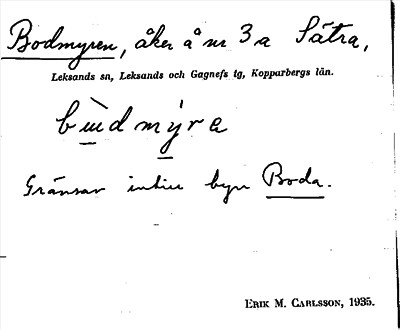 Bodmyren, åker å nr 3 a Sätra,
Leksands sn, Leksands och Gagnefs tg, Kopparbergs län.
bùdmýra
Gränsar intill byn Boda.
ERIK M. CARLSSON, 1935.